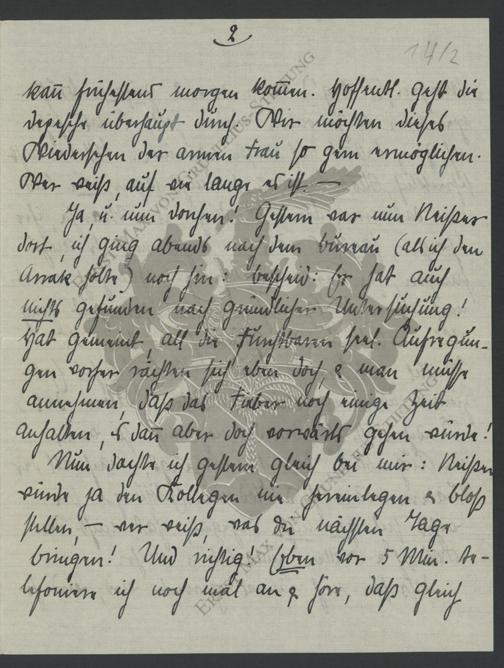 2
14/2
kan̄ frühestens morgen kom̄en. Hoffentl. geht die
depesche überhaupt durch. Wir möchten dieses
Wiedersehen der armen Frau so gern ermöglichen.
Wer weiß, auf wie lange es ist. —
Ja u. nun Dorchen! Gestern war nun Neisser
dort, ich ging abends nach dem büreau (als ich den
Arrak holte) noch hin: bescheid: Er hat auch
nichts gefunden nach gründlicher Untersuchung!
Hat gemeint, all die furchtbaren seel. Aufregun-
gen vorher rächten sich eben doch, & man müsse
annehmen, daß das Fieber noch einige Zeit
anhalten, es dan̄ aber doch vorwärts gehen würde!
Nun dachte ich gestern gleich bei mir: Neisser
würde ja den Kollegen nie hereinlegen & bloß
stellen, — wer weiß, was die nächsten Tage
bringen! Und richtig! Eben vor 5 Min. te-
lefoniere ich noch mal an & höre, daß gleich